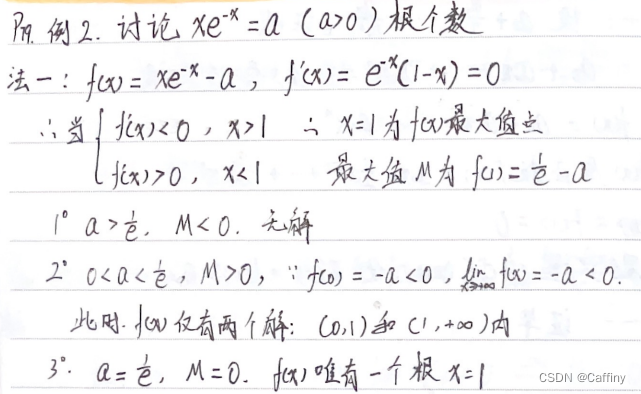 P19. 例2. 讨论 xe^{-x} = a (a>0) 根个数
法一: f(x) = xe^{-x} - a, f'(x) = e^{-x}(1-x) = 0
∴当 { f'(x)<0, x>1 ∴ x=1为f(x)最大值点
f'(x)>0, x<1 最大值M为 f(1) = 1/e - a
1° a > 1/e, M<0. 无解
2° 0<a<1/e, M>0, ∵ f(0) = -a<0, lim_{x→+∞} f(x) = -a<0.
此时. f(x) 仅有两个解: (0,1)和(1,+∞)内
3°. a = 1/e, M=0. f(x)唯有一个根 x=1
CSDN @Caffiny